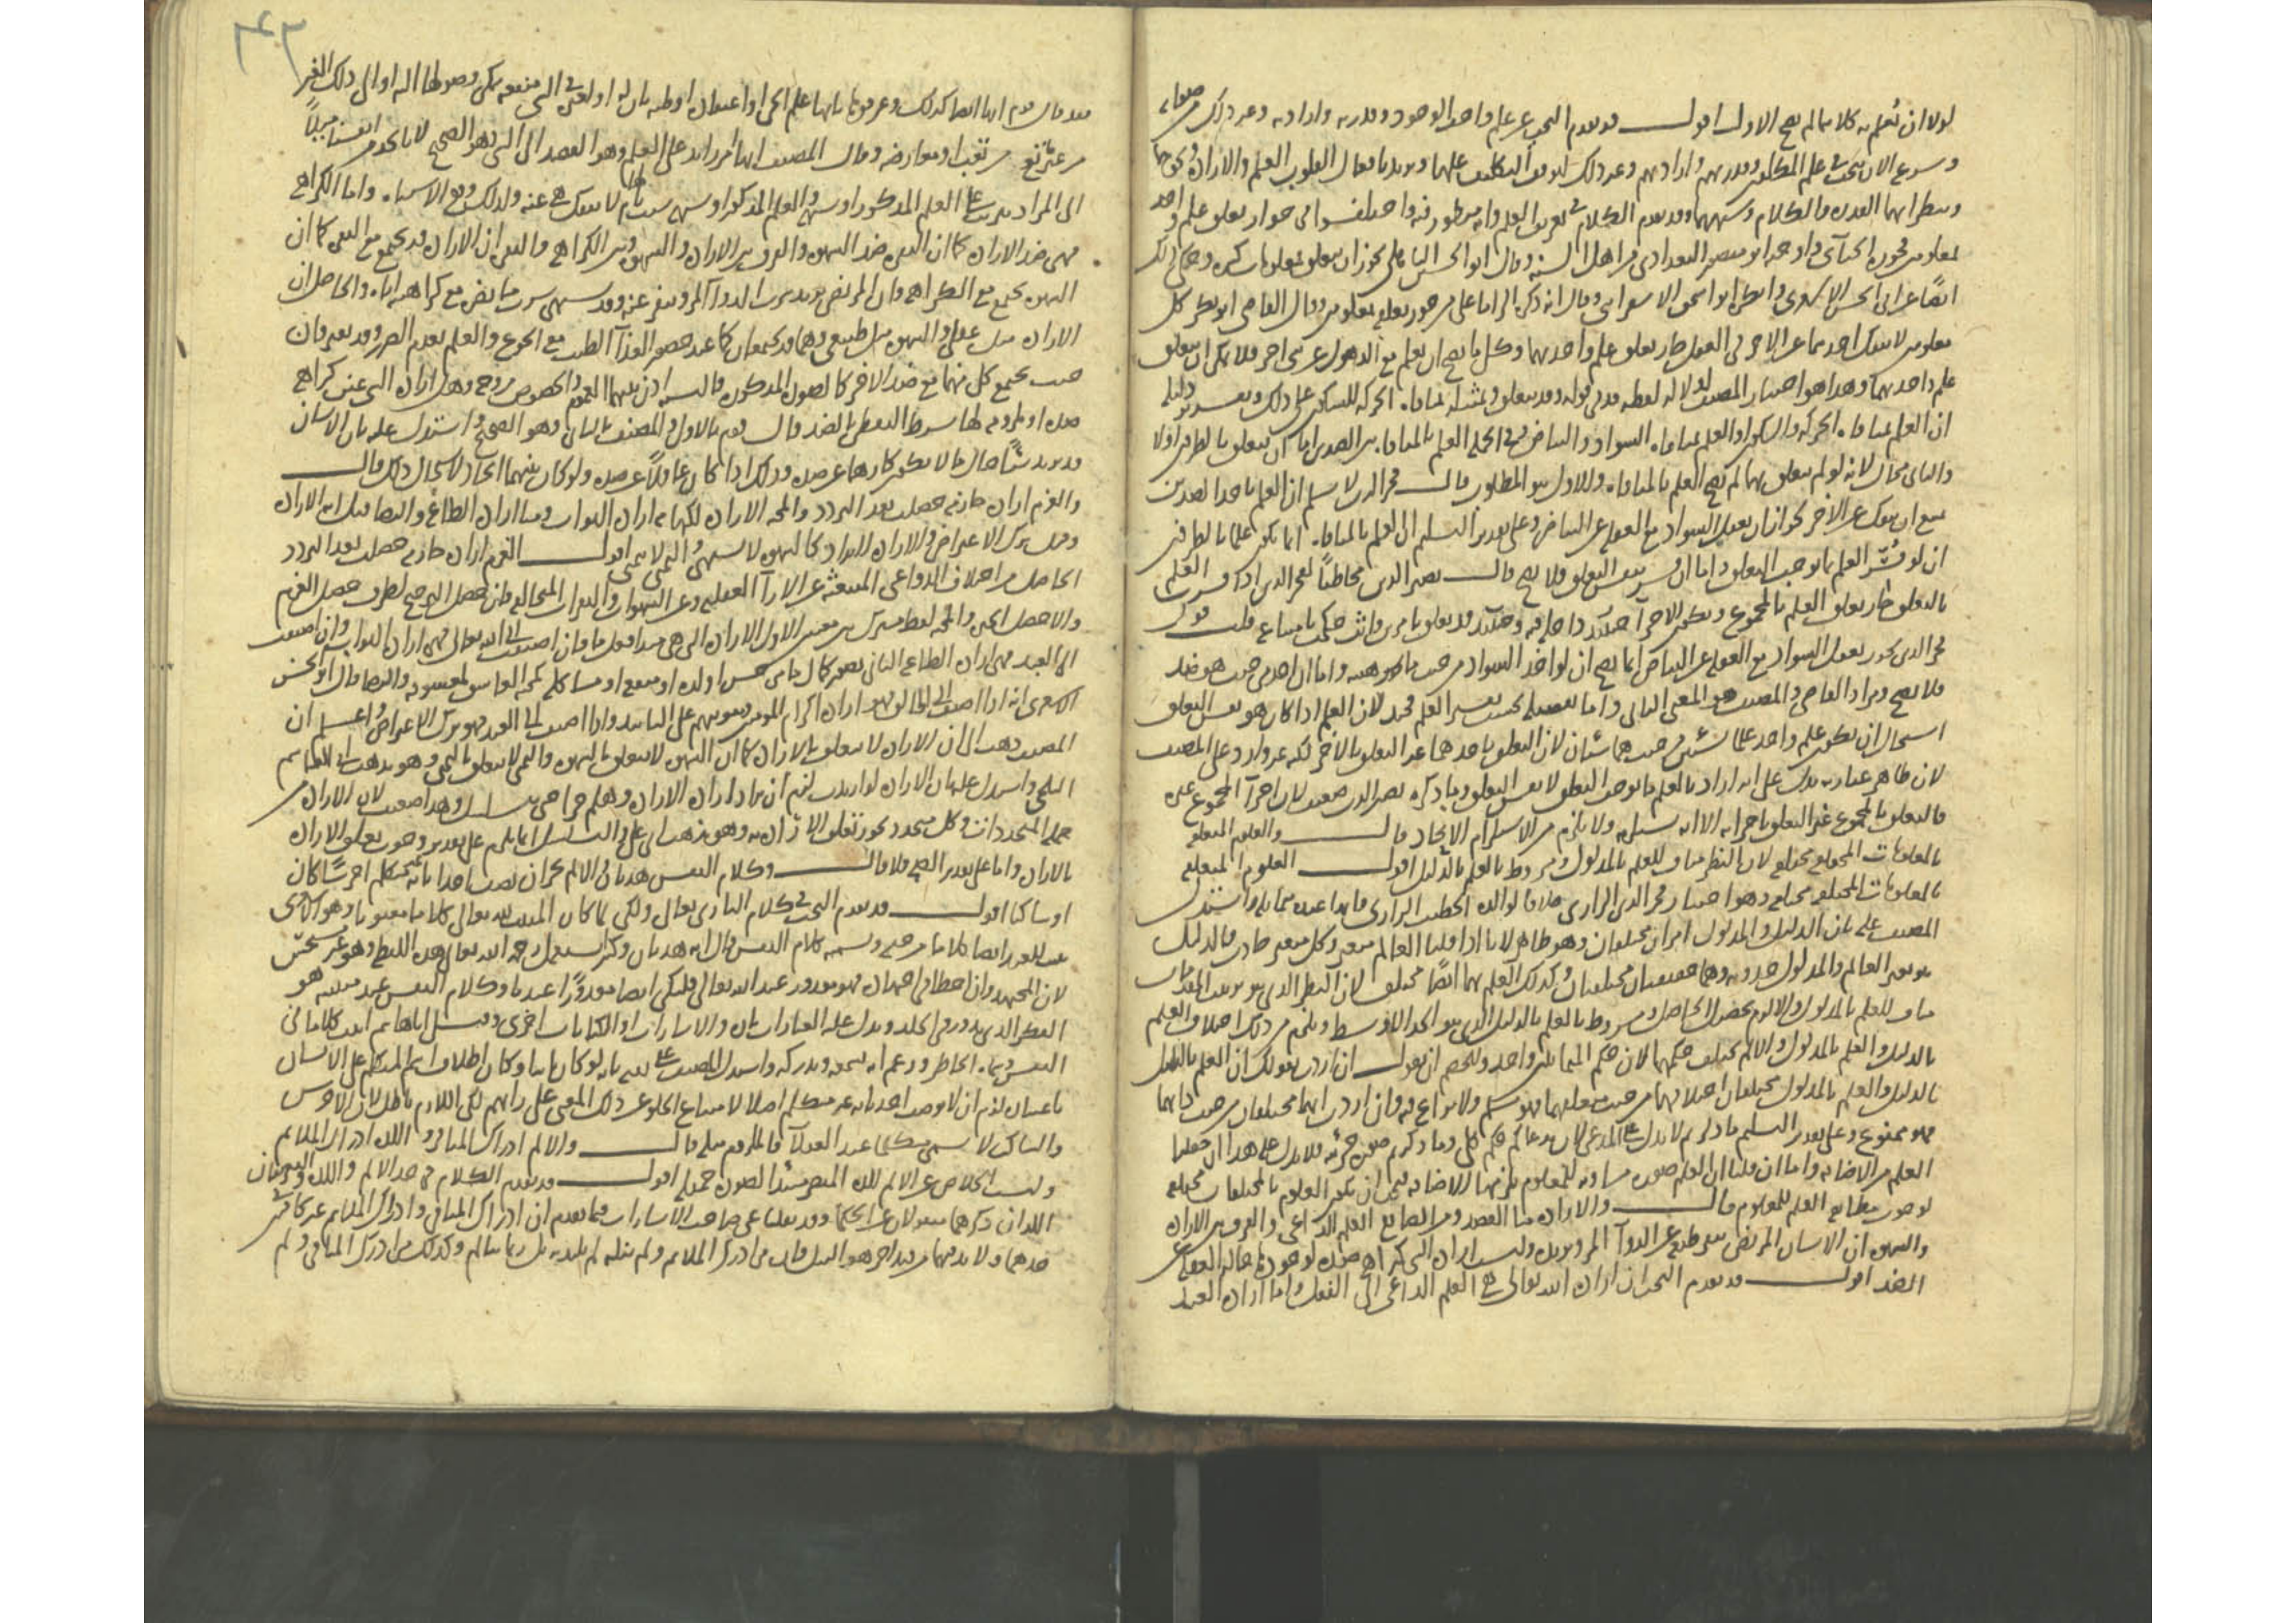 لولا ان نعلم به كلاما لم يصح الاول اقول قد تقدم البحث عن علم واجب الوجود وقدرته وارادته وغير ذلك من صفاته
وشرع الآن يبحث في علم المكلفين وقدرهم وارادتهم وغير ذلك لتوقف التكليف عليها ويريد بافعال القلوب العلم والارادة ونحوهما
وينظر ايهما القدرة والكلام وقد تقدم الكلام في تعريف العلم وانه واختلفوا في جواز تعلق علم واحد
بمعلومين فجوزه الجبائي وابو منصور البغدادي من اهل السنة وقال ابو الحسن الباهلي يجوز ان يتعلق بمعلومات كثيرة وحكى ذلك
ايضا عن ابي الحسن الاشعري وانكره ابو اسحق الاسفرايني وقال انه ذكره الزاما على من جوز تعلقه بمعلومين وقال القاضي ابو بكر كل
معلومين لا ينفك احدهما عن الاخر في العقل جاز تعلق علم واحد بهما وكل ما يصح ان يعلم مع الذهول عن الاخر فلا يمكن ان يتعلق
علم واحد بهما وهذا هو اختيار المصنف لدلالة لفظه قد في قوله وقد يتعلق ومثله بمنافاة الحركة للسكون على ذلك
ان العلم بمنافاة الحركة والسكون او العلم بمنافاة السواد والبياض وفي الجملة العلم بالمنافاة بين الضدين اما ان يتعلق بالطرفين اولا
والثاني محال لانه لو لم يتعلق بهما لم يصح العلم بالمنافاة والاول هو المطلوب قال فخر الدين لا نسلم ان العلم باحد الضدين
يمنع ان ينفك عن الاخر لجواز ان يعقل السواد مع الغفلة عن البياض وعلى تقدير التسليم ان العلم بالمنافاة انما يكون علما بالطرفين
ان لو فسر العلم بما يوجب التعلق واما ان فسر بنفس التعلق فلا يصح قال نصير الدين مخاطبا لفخر الدين اذا فسرت العلم
بالتعلق جاز تعلق العلم بالمجموع ويكون الاجزاء حينئذ داخلة فيه وحينئذ قد تعلق بامرين حكمت بامتناعه قلت قول
فخر الدين يجوز تعقل السواد مع الغفلة عن البياض انما يصح ان لو اخذ السواد من حيث ماهيته واما ان اخذ من حيث هو ضد
فلا يصح ومراد القاضي والمصنف هو المعنى الثاني واما تفصيله بحسب تفسير العلم فجيد لان العلم اذا كان هو نفس التعلق
استحال ان يكون علم واحد علما بشيئين من حيث هما شيئان لان التعلق باحدهما غير التعلق بالاخر لكنه غير وارد على المصنف
لان ظاهر عبارته يدل على انه اراد بالعلم ما يوجب التعلق لا نفس التعلق وما ذكره نصير الدين ضعيف لان اجزاء المجموع غيره
فالتعلق بالمجموع غير التعلق باجزائه الا انه يستلزمه ولا يلزم من الاستلزام الاتحاد قال والعلوم المتعلقة
بالمعلومات المختلفة مختلفة لان النظر مناف للعلم بالمدلول ومشروط بالعلم بالدليل اقول العلوم المتعلقة
بالمعلومات المختلفة مختلفة وهو اختيار فخر الدين الرازي خلافا لوالده الخطيب الرازي فانها عنده متماثلة واستدل
المصنف عليه بان الدليل والمدلول امران مختلفان وهو ظاهر لانا اذا قلنا العالم متغير وكل متغير حادث فالدليل
هو تغير العالم والمدلول حدوثه وهما حقيقتان مختلفتان وكذلك العلم بهما ايضا مختلف لان النظر الذي هو ترتيب المقدمات
مناف للعلم بالمدلول والا لزم تحصيل الحاصل ومشروط بالعلم بالدليل الذي هو الحد الاوسط ويلزم من ذلك اختلاف العلم
بالدليل والعلم بالمدلول والا لم يختلف حكمهما لان حكم المتماثلين واحد وللخصم ان يقول ان اردت بقولك ان العلم بالدليل
بالدليل والعلم بالمدلول مختلفان اختلافهما من حيث تعلقهما فهو مسلم ولا نزاع فيه وان اردت انهما مختلفان من حيث ذاتهما
فهو ممنوع وعلى تقدير التسليم ما ذكرتم لا يدل على المدعى لان مدعاكم حكم كلي وما ذكرتم صورة جزئية فلا يدل عليه هذا ان جعلنا
العلم من الاضافة واما ان قلنا ان العلم صورة مساوية للمعلوم يلزمها الاضافة فيجب ان يكون العلوم بالمختلفات مختلفة
لوجوب مطابقة العلم للمعلوم قال والارادة منا القصد ومن الصانع العلم الداعي والفرق بين الارادة
والشهوة ان الانسان المريض ينفر طبعه عن الدواء المر ويريده وليست ارادة الشيء كراهة ضده لوجودها حالة الغفلة عن
الضد اقول قد تقدم البحث ان ارادة الله تعالى هي العلم الداعي الى الفعل واما ارادة العبد
٢٤٣
فقد قال قوم انها ايضا كذلك وعرفوها بانها علم الحي او اعتقاده او ظنه بان له او لغيره في الشيء منفعة يمكن وصولها اليه او الى ذلك الغير
من غير مانع من تعب او معارضة وقال المصنف انها امر زائد على العلم وهو القصد الى الشيء وهو الصحيح لانا نجد من انفسنا ميلا
الى المراد يترتب على العلم المذكور او شبهه والعلم المذكور او شبهه سبب تام لها لا ينفك هي عنه ولذلك وقع الاشتباه واما الكراهة
فهي ضد الارادة كما ان النفرة ضد الشهوة والفرق بين الارادة والشهوة وبين الكراهة والنفرة ان الارادة قد تجتمع مع النفرة كما ان
الشهوة تجتمع مع الكراهة فان المريض يريد شرب الدواء المر وينفر عنه وقد يشتهي شرب ما يضر مع كراهته اياه والحاصل ان
الارادة ميل عقلي والشهوة ميل طبيعي وهما قد يجتمعان كما عند حضور الغذاء الطيب مع الجوع والعلم بعدم الضرر وقد يفترقان
حيث يجتمع كل منهما مع ضد الاخر كالصورة المذكورة فالنسبة اذن بينهما العموم والخصوص من وجه وهل ارادة الشيء عين كراهة
ضده او ملزومة لها بشرط التفطن بالضد قال قوم بالاول والمصنف بالثاني وهو الصحيح واستدل عليه بان الانسان
قد يريد شيئا حال ما لا يكون كارها عن ضده وذلك اذا كان غافلا عن ضده ولو كان بينهما اتحاد لاستحال ذلك قال
والعزم ارادة جازمة حصلت بعد التردد والمحبة الارادة لكنها منه ارادة الثواب ومنا ارادة الطاعة والرضا قيل انه الارادة
وقيل ترك الاعتراض والارادة لا تراد كما الشهوة لا تشتهى والتمني لا يتمنى اقول العزم ارادة جازمة حصلت بعد التردد
الحاصل من اختلاف الدواعي المنبعثة عن الاراء العقلية وعن الشهوات والنفرات المتخالفة فان حصل الترجيح لطرف حصل العزم
والا حصل التحير والمحبة لفظ مشترك بين معنيين الاول الارادة التي هي مبدا فعل ما فان اضيفت الى الله تعالى فهي ارادة الثواب وان اضيفت
الى العبد فهي ارادة الطاعة الثاني تصور كمال ما من حسن او لذة او منفعة او مشاكلة كمحبة العاشق لمعشوقه والرضا قال ابو الحسن
الاشعري انه اذا اضيف الى الخالق فهو ارادة اكرام المؤمنين ومثوبتهم على التأبيد واذا اضيف الى العبد فهو ترك الاعتراض واعلم ان
المصنف ذهب الى ان الارادة لا تتعلق بالارادة كما ان الشهوة لا تتعلق بالشهوة والتمني لا يتعلق بالتمني وهو مذهب ابي القاسم
البلخي واستدل عليه بان الارادة لو اريدت لزم ان يراد ارادة الارادة وهلم جرا حتى يتسلسل وهذا ضعيف لان الارادة من
جملة المتجددات وكل متجدد يجوز تعلق الارادة به وهو مذهب ابي علي والتسلسل انما يلزم على تقدير وجوب تعلق الارادة
بالارادة واما على تقدير الصحة فلا قال وكلام النفس هذيان والا لم يجز ان يصف احدا بانه متكلم اخرسا كان
او ساكتا اقول قد تقدم البحث في كلام الباري تعالى ولكن لما كان المثبت لله تعالى كلاما معنويا وهو الاشعري
يثبت للعبد ايضا كلاما من جنسه ويسميه كلام النفس قال انه هذيان وكثر استعمال رحمه الله تعالى هذه اللفظة وهو غير مستحسن
لان المجتهد وان اخطا في اجتهاده فهو معذور عند الله تعالى فليكن ايضا معذورا عندنا وكلام النفس عند مثبتيه هو
الفكر الذي يدور في الخلد ويدل عليه العبارات تارة والاشارات او الكتابات اخرى وقيل اباهاشم اثبت كلاما في
النفس وسماه الخاطر وزعم انه يسمعه ويدركه واستدل المصنف على نفيه بانه لو كان ثابتا وكان اطلاق اسم المتكلم على الانسان
باعتباره لزم ان لا يوصف احد بانه غير متكلم اصلا لامتناع الخلو عن ذلك المعنى على رايهم لكن اللازم باطل لان الاخرس
والساكت لا يسمى متكلما عند العقلاء فالملزوم مثله قال والالم ادراك المنافر واللذة ادراك الملائم
وليست الخلاص عن الالم للذة المبصر مبتدأ لصورة جميلة اقول قد تقدم الكلام في حد الالم واللذة والتعريفان
اللذان ذكرهما منقولان عن الحكماء وقد نقلنا عن صاحب الاشارات فيما تقدم ان ادراك المنافي وادراك الملائم غير كاف في
حدهما ولا بد فيهما من قيد اخر هو النيل فان من ادرك الملائم ولم ينله لم يلتذ به بل ربما يتالم وكذلك من ادرك المنافي ولم